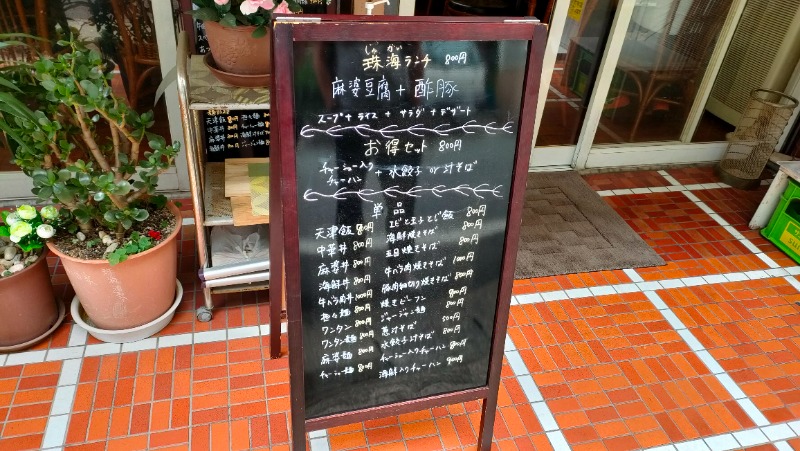 じゅかい
珠海ランチ 800円
麻婆豆腐 + 酢豚
スープ + ライス + サラダ + デザート
お得セット 800円
チャーシュー入りチャーハン + 水餃子 or 汁そば
単品
天津飯 800円
中華丼 800円
麻婆丼 800円
海鮮丼 800円
牛バラ肉丼 1000円
担々麺 800円
ワンタン 800円
ワンタン麺 800円
麻婆麺 800円
チャーシュー麺 800円
エビと玉子とじ飯 800円
海鮮焼きそば 800円
五目焼きそば 800円
牛バラ肉焼きそば 1000円
豚肉細切り焼きそば 800円
焼きビーフン 800円
ジャージャー麺 800円
葱汁そば 500円
水餃子汁そば 800円
チャーシュー入りチャーハン 800円
海鮮入りチャーハン 900円